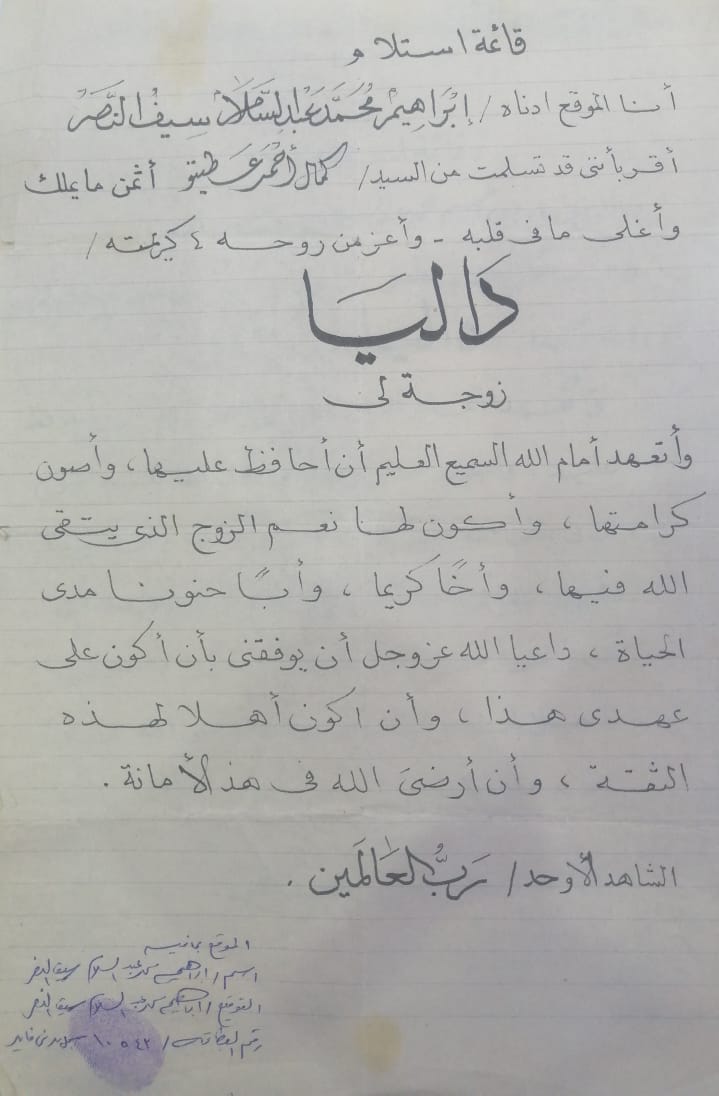 قائمة استلام
أنا الموقع ادناه / إبْرَاهِيمْ مُحَمَّد عَبْد السَّلَامْ سِيفُ النَّصَرْ
أقر بأننى قد تسلمت من السيد / كمال أحمد عطيتو أثمن ما يملك
وأغلى ما فى قلبه - وأعز من روحه ، كريمته /
دَاليَا
زوجة لى
وأتعهد أمام الله السميع العليم أن أحافظ عليها ، وأصون
كرامتها ، وأكون لها نعم الزوج الذى يتقى
الله فيها ، وأخًا كريما ، وأبًا حنونا مدى
الحياة ، داعيا الله عز وجل أن يوفقنى بأن أكون على
عهدى هذا ، وأن اكون أهلا لهذه
الثقة ، وأن أرضىَ الله فى هذ الأمانة .
الشاهد الأوحد / رَبُّ العَالَمَين .
الموقع بما فيه
اسم / إبراهيم محمد عبد السلام سيف النصر
التوقيع / إبراهيم محمد عبد السلام سيف النصر
رقم البطاقة / ١٠٥٤٢ سجل مدنى فايد